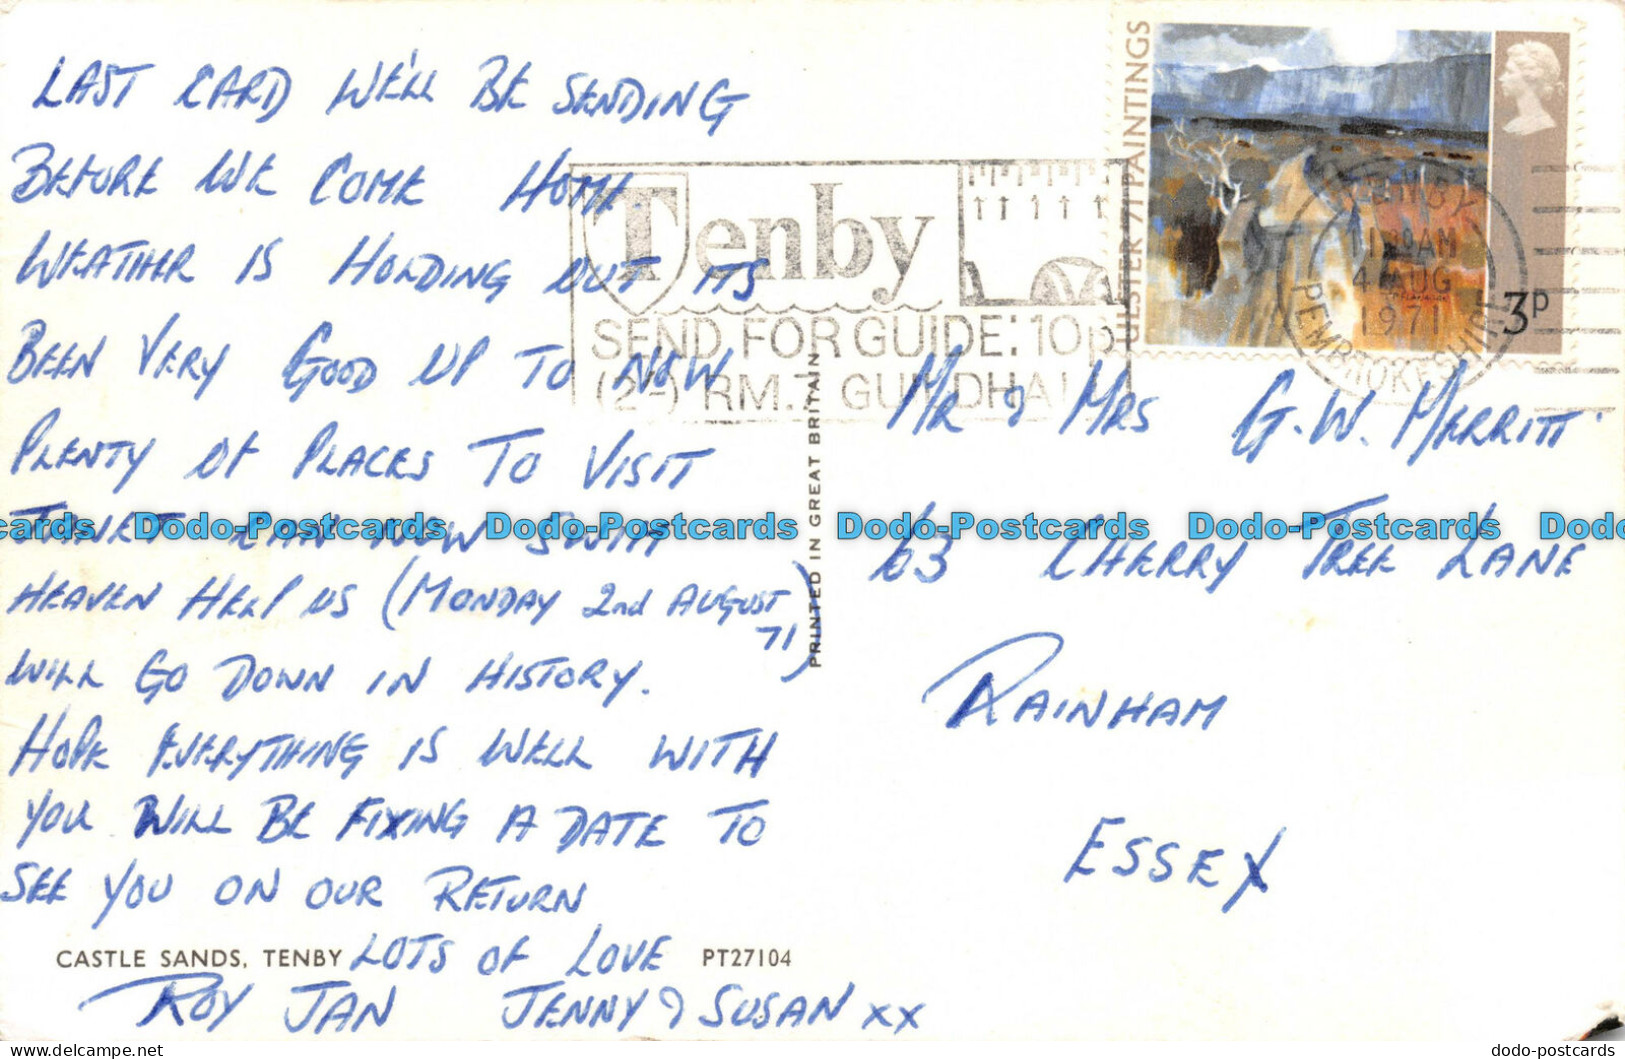 LAST CARD WE'LL BE SENDING
BEFORE WE COME HOME.
WEATHER IS HOLDING OUT ITS
BEEN VERY GOOD UP TO NOW
PLENTY OF PLACES TO VISIT
JANET CAN NOW SWIM
HEAVEN HELP US (MONDAY 2nd AUGUST
71)
WILL GO DOWN IN HISTORY.
HOPE EVERYTHING IS WELL WITH
YOU WILL BE FIXING A DATE TO
SEE YOU ON OUR RETURN
LOTS OF LOVE
ROY JAN JENNY & SUSAN xx
CASTLE SANDS, TENBY
PT27104
PRINTED IN GREAT BRITAIN
Tenby
SEND FOR GUIDE: 10p
(2/-) RM.7 GUILDHALL
ULSTER '71 PAINTINGS
3p
TENBY
AM
4 AUG
1971
PEMBROKESHIRE
MR & MRS G.W. MERRITT
63 CHERRY TREE LANE
RAINHAM
ESSEX
Dodo-Postcards Dodo-Postcards Dodo-Postcards Dodo-Postcards
delcampe.net
dodo-postcards